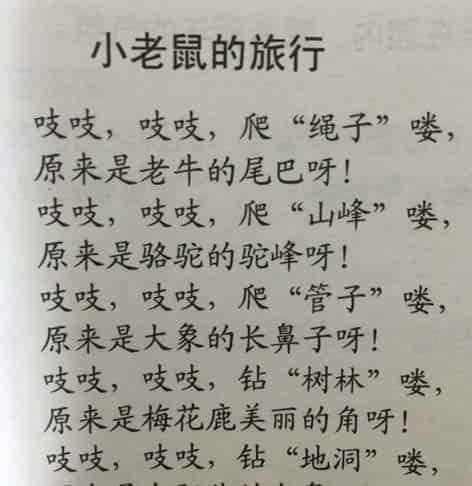 小老鼠的旅行
吱吱，吱吱，爬“绳子”喽，
原来是老牛的尾巴呀！
吱吱，吱吱，爬“山峰”喽，
原来是骆驼的驼峰呀！
吱吱，吱吱，爬“管子”喽，
原来是大象的长鼻子呀！
吱吱，吱吱，钻“树林”喽，
原来是梅花鹿美丽的角呀！
吱吱，吱吱，钻“地洞”喽，